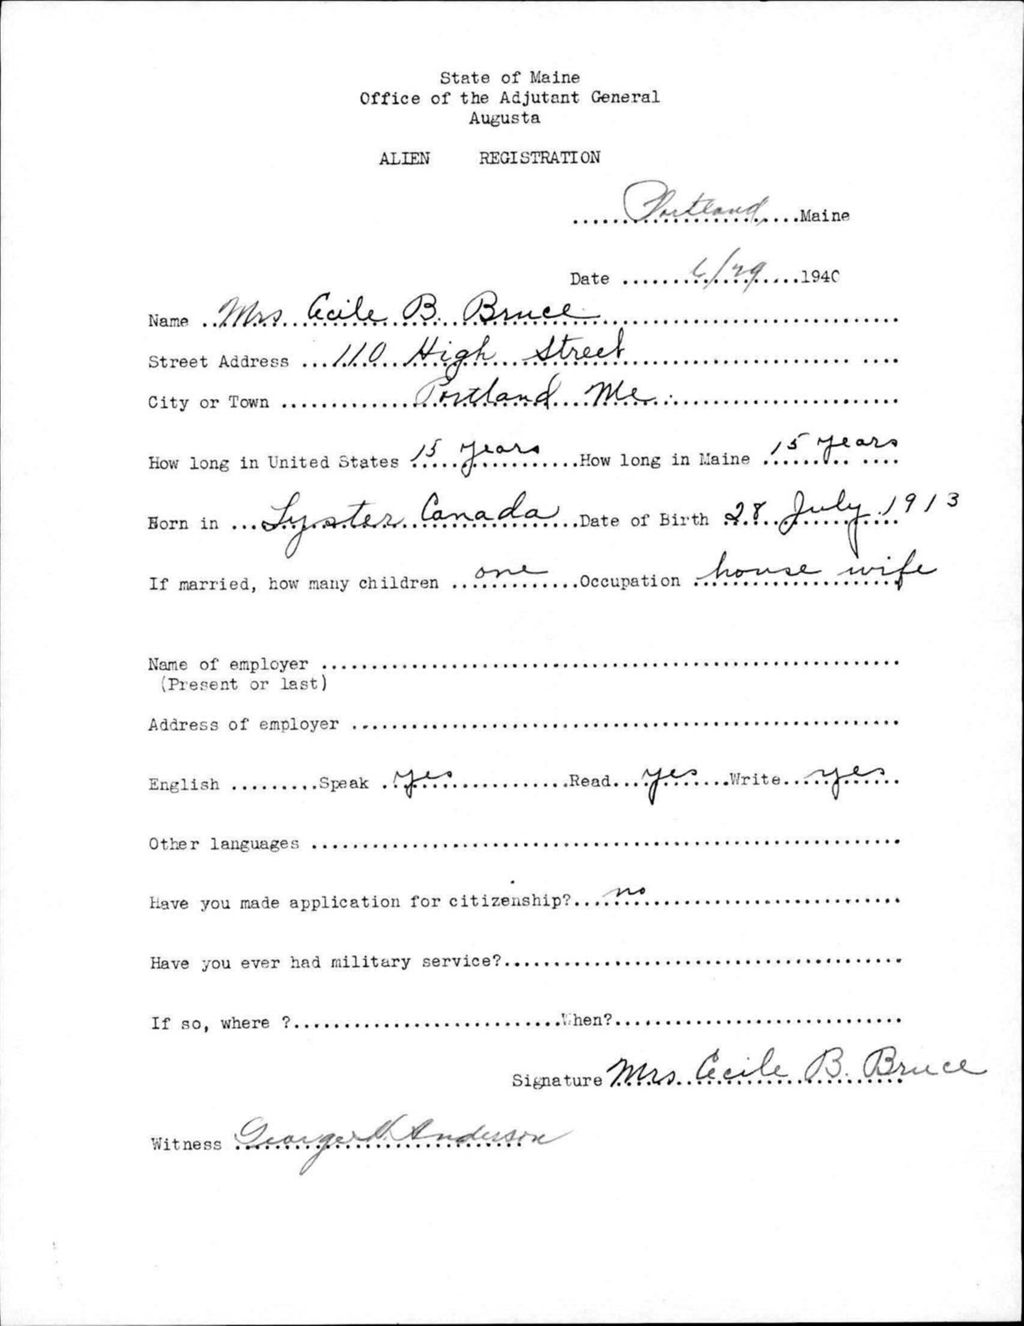 State of Maine
Office of the Adjutant General
Augusta
ALIEN REGISTRATION
......Portland......Maine
Date ......6/29......1940
Name ..Mrs. Cecile B. Bruce......
Street Address ...110 High Street......
City or Town ......Portland Me......
How long in United States 15 years......How long in Maine 15 years......
Born in ...Lyster Canada......Date of Birth 28 July 1913
If married, how many children ..one......Occupation house wife
Name of employer ......
(Present or last)
Address of employer ......
English .........Speak .yes......Read....yes......Write....yes......
Other languages ......
Have you made application for citizenship?...no......
Have you ever had military service?......
If so, where ?......When?......
Signature Mrs. Cecile B. Bruce
Witness George H. Anderson